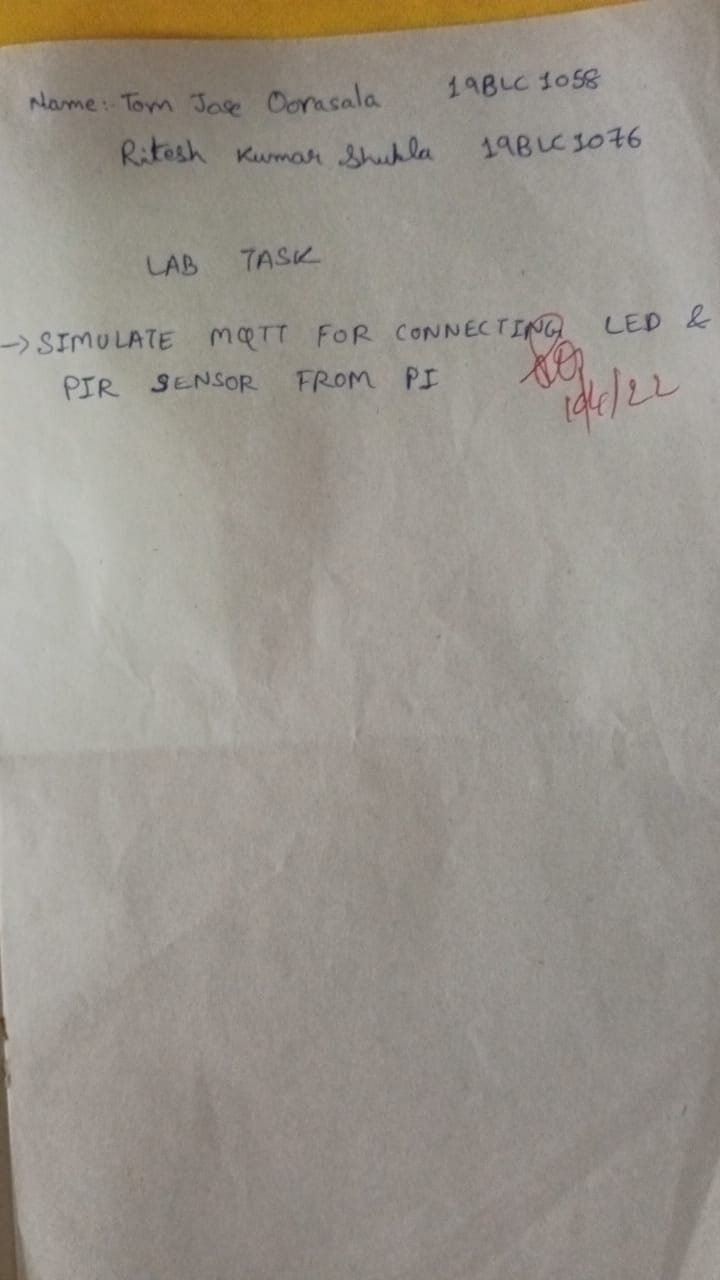 Name:- Tom Jose Oorasala 19BLC1058
Ritesh Kumar Shukla 19BLC1076
LAB TASK
→ SIMULATE MQTT FOR CONNECTING LED &
PIR SENSOR FROM PI
/22